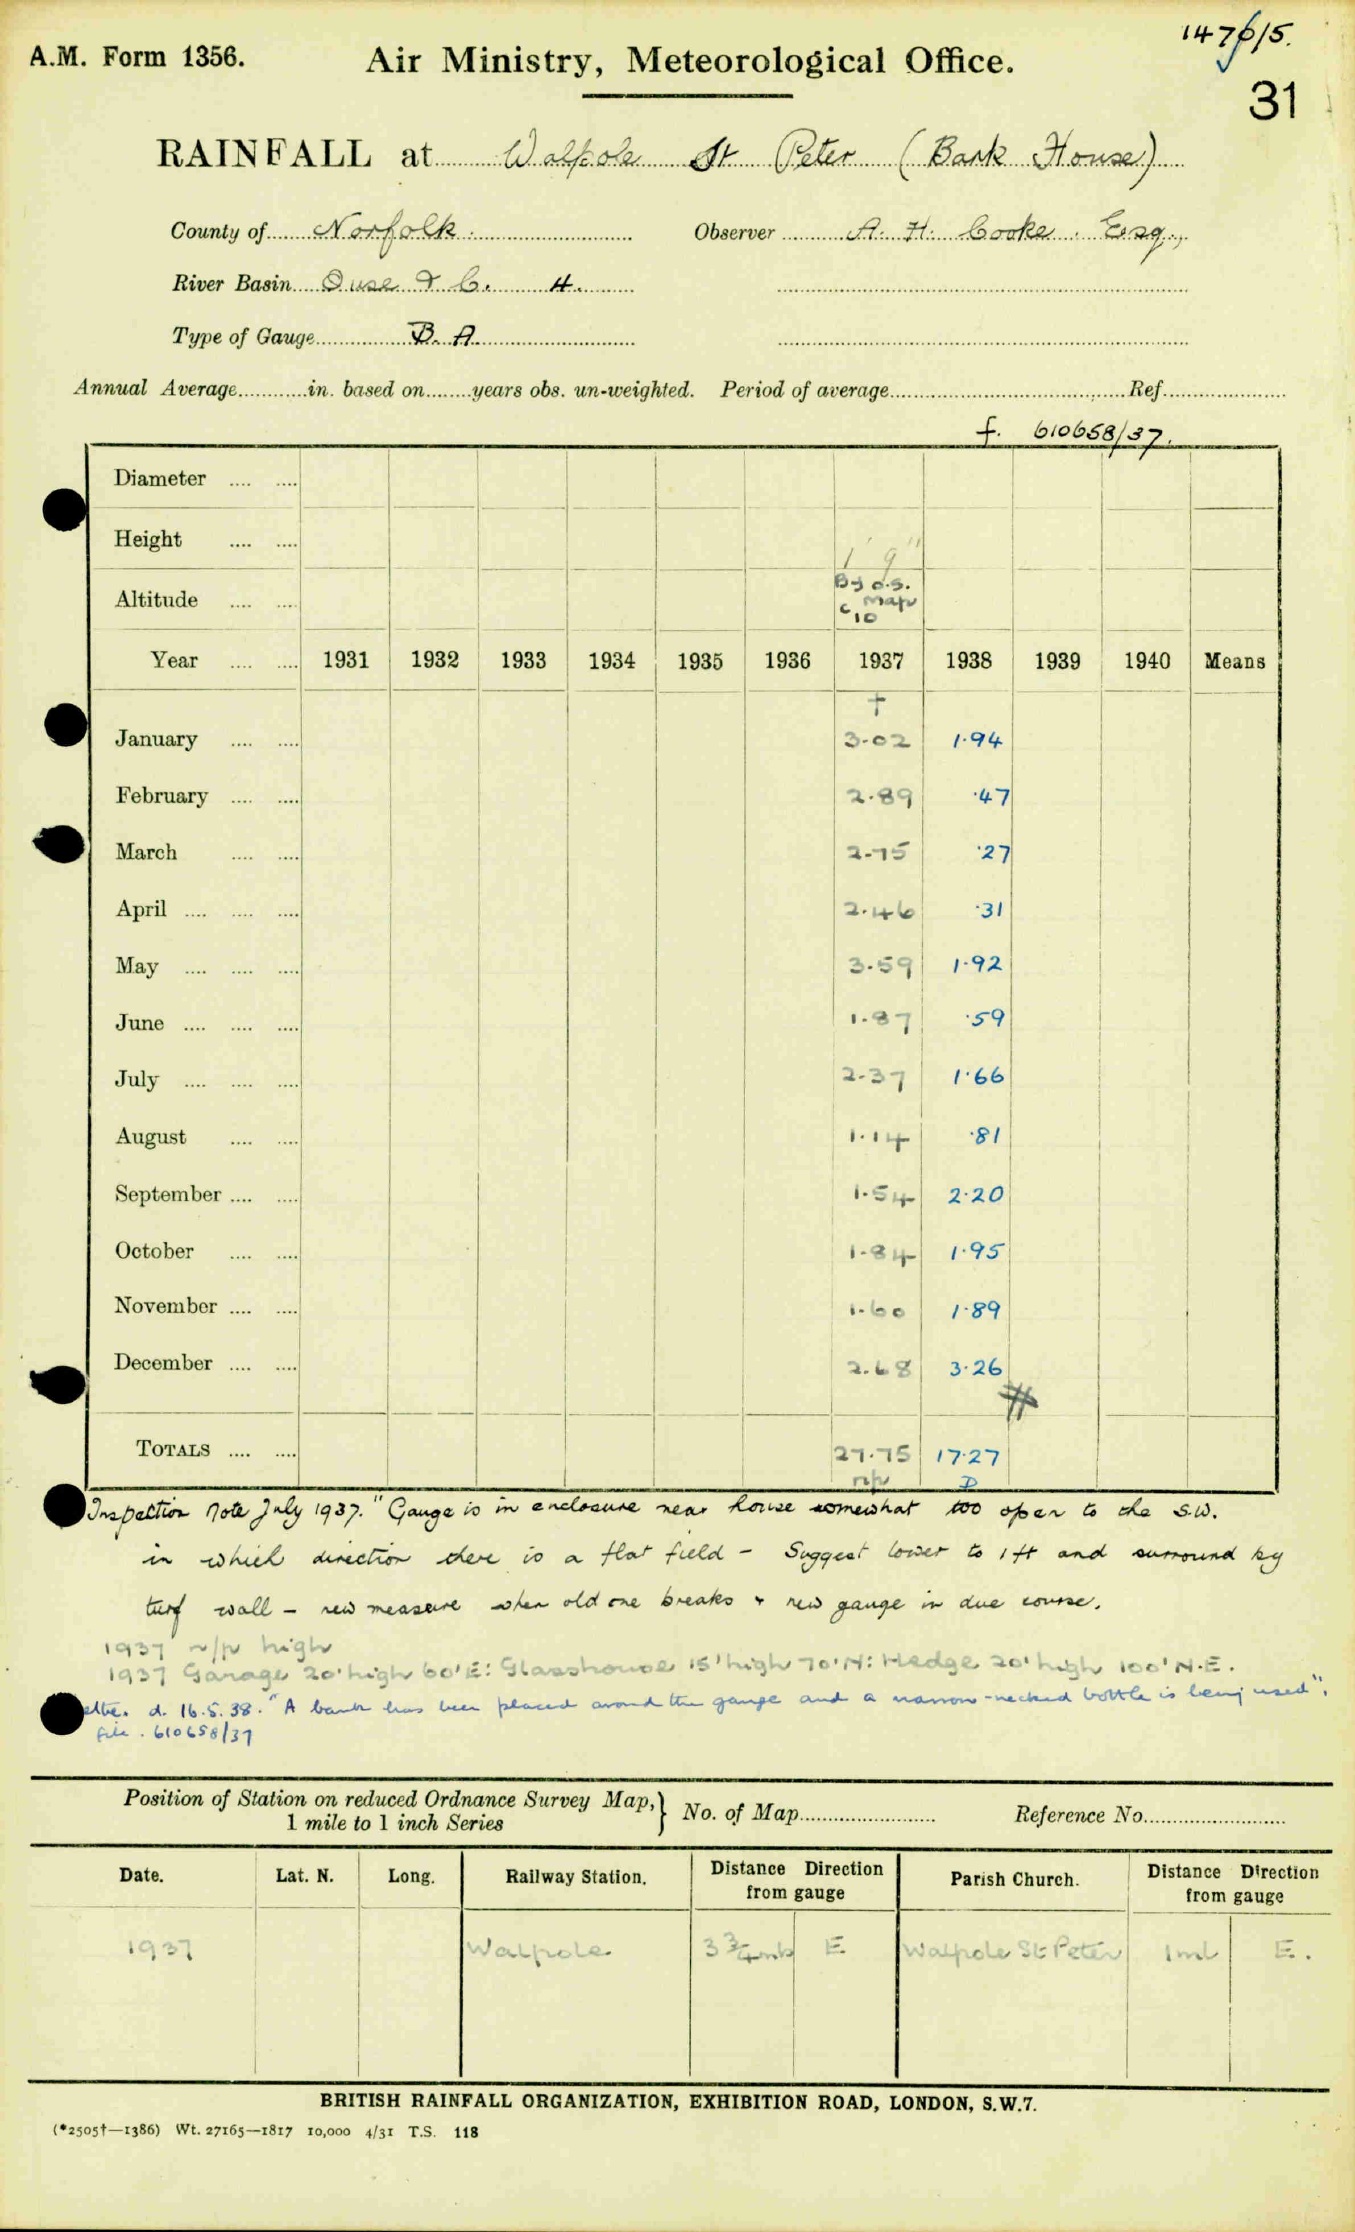 1476/5.
A.M. Form 1356. Air Ministry, Meteorological Office.
31
RAINFALL at Walpole St Peter (Bank House)
County of Norfolk. Observer A. H. Cooke. Esq.,
River Basin Ouse & C. 4.
Type of Gauge B. A.
Annual Average in. based on years obs. un-weighted. Period of average Ref.
f. 610658/37.
Diameter
Height 1' 9"
Altitude By O.S. Map c 10
Year 1931 1932 1933 1934 1935 1936 1937 1938 1939 1940 Means
†
January 3.02 1.94
February 2.89 .47
March 2.75 .27
April 2.46 .31
May 3.59 1.92
June 1.87 .59
July 2.37 1.66
August 1.14 .81
September 1.54 2.20
October 1.84 1.95
November 1.60 1.89
December 2.68 3.26
#
TOTALS 27.75 17.27
n/p D
Inspection Note July 1937. "Gauge is in enclosure near house somewhat too open to the S.W.
in which direction there is a flat field - Suggest lower to 1 ft and surround by
turf wall - new measure when old one breaks & new gauge in due course.
1937 n/p high
1937 Garage 20' high 60' E: Glasshouse 15' high 70' N: Hedge 20' high 100' N.E.
d. 16.5.38. "A bank has been placed around the gauge and a narrow-necked bottle is being used".
file. 610658/37
Position of Station on reduced Ordnance Survey Map, 1 mile to 1 inch Series } No. of Map Reference No.
Date. Lat. N. Long. Railway Station. Distance Direction from gauge Parish Church. Distance Direction from gauge
1937 Walpole 3 3/4 mls E. Walpole St Peter 1 ml E.
BRITISH RAINFALL ORGANIZATION, EXHIBITION ROAD, LONDON, S.W.7.
(*2505†—1386) Wt. 27165—1817 10,000 4/31 T.S. 118